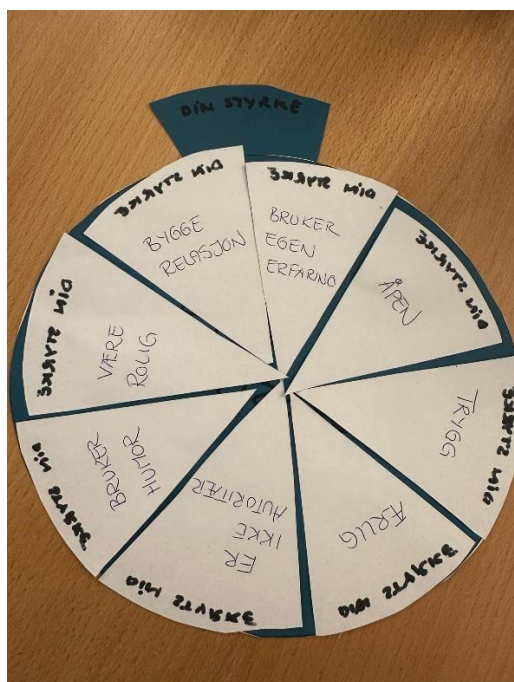 DIN STYRKE
DIN STYRKE
BYGGE
RELASJON
DIN STYRKE
BRUKER
EGEN
ERFARING
DIN STYRKE
ÅPEN
DIN STYRKE
TRYGG
DIN STYRKE
ÆRLIG
DIN STYRKE
ER
IKKE
AUTORITÆR
DIN STYRKE
BRUKER
HUMOR
DIN STYRKE
VÆRE
ROLIG